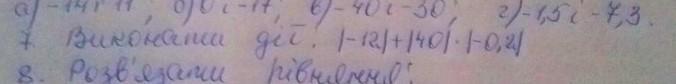 а) -14 і 11; б) 0 і -17; в) -40 і -30; г) -1,5 і -7,3.
7. Виконати дії: |-12|+|40|·|-0,2|
8. Розв'язати рівняння: